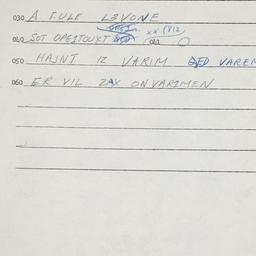 030 A FULE LEVONE
040 SOT OPEITOUXT
050 HAJNT IZ VARIM VAREN
060 ER VIL ZAX ONVARIMEN